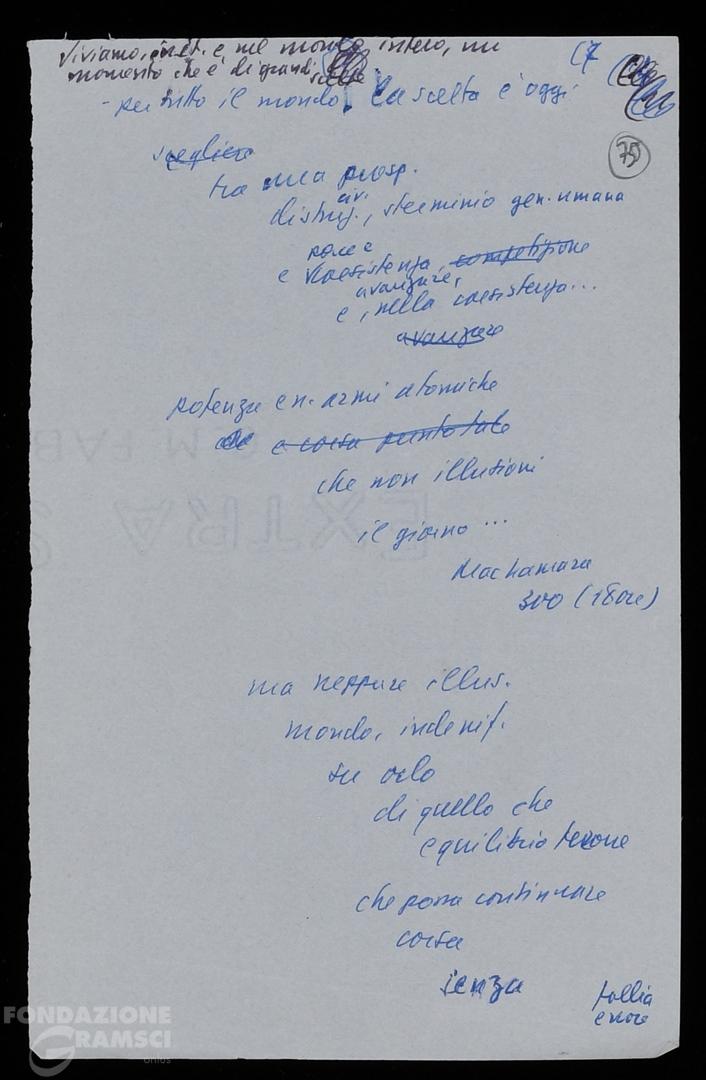 Viviamo, in It. e nel mondo intero, un
momento che è di grandi scelte
17
- per tutto il mondo la scelta è oggi
75
scegliere
tra una prosp.
civ.
distruz., sterminio gen. umana
pace e
e coesistenza, competizione
avanzare,
e, nella coesistenza...
avanzare
potenze en. armi atomiche
e corsa puntotale
che non illusioni
il giorno ...
MacNamara
300 (18 ore)
ma neppure illus.
mondo, indenif.
su orlo
di quello che
equilibrio terrore
che possa continuare
corsa
senza
follia
errore
FONDAZIONE
GRAMSCI
onlus
EXTRA S